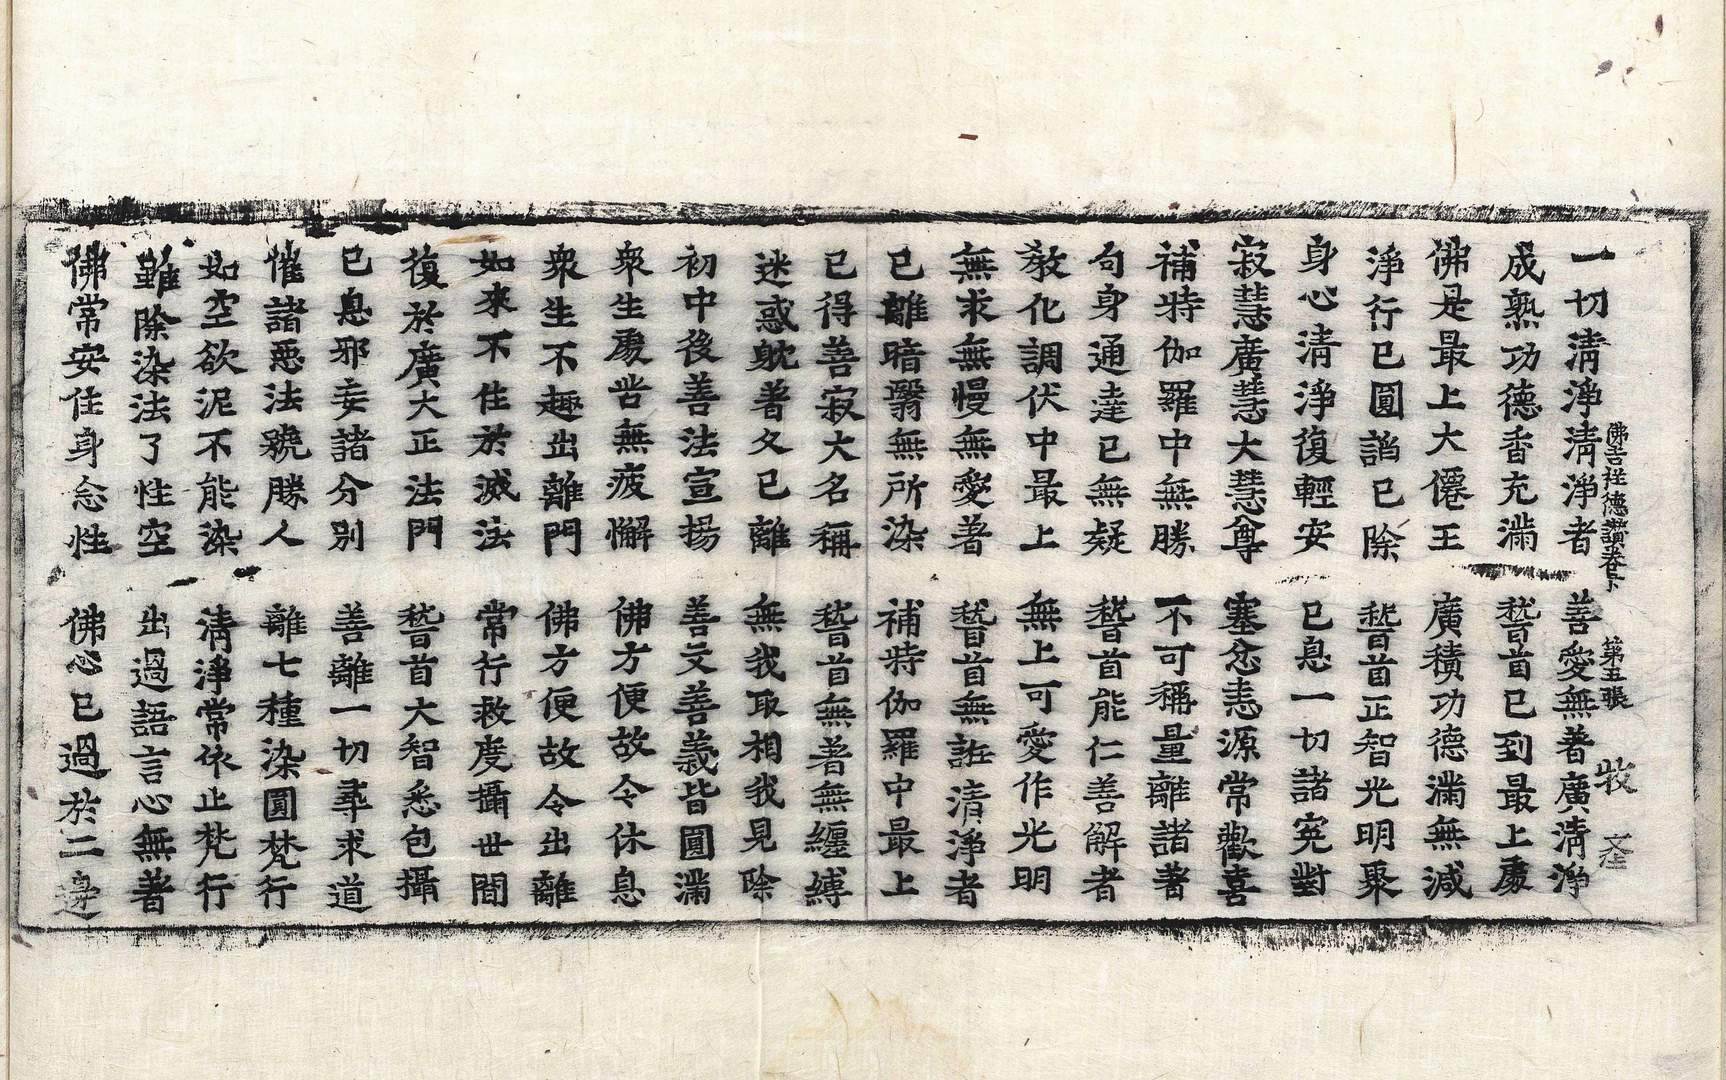 一切清淨清淨者 善愛無著廣清淨
佛吉祥德讚卷下 第五張 牧 文
成熟功德香充滿 稽首已到最上處
佛是最上大僊王 廣積功德滿無減
淨行已圓諂已除 稽首正智光明聚
身心清淨復輕安 已息一切諸寃對
寂慧廣慧大慧尊 塞忿恚源常歡喜
補特伽羅中無勝 不可稱量離諸著
句身通達已無疑 稽首能仁善解者
教化調伏中最上 無上可愛作光明
無求無慢無愛著 稽首無誑清淨者
已離暗翳無所染 補特伽羅中最上
已得善寂大名稱 稽首無著無纏縛
迷惑躭著久已離 無我取相我見除
初中後善法宣揚 善文善義皆圓滿
衆生處世無疲懈 佛方便故令休息
衆生不趣出離門 佛方便故令出離
如來不住於滅法 常行救度攝世間
復於廣大正法門 稽首大智悉包攝
已息邪妄諸分別 善離一切尋求道
摧諸惡法號勝人 離七種染圓梵行
如空欲泥不能染 清淨常依止梵行
雖除染法了性空 出過語言心無著
佛常安住身念性 佛心已過於二邊